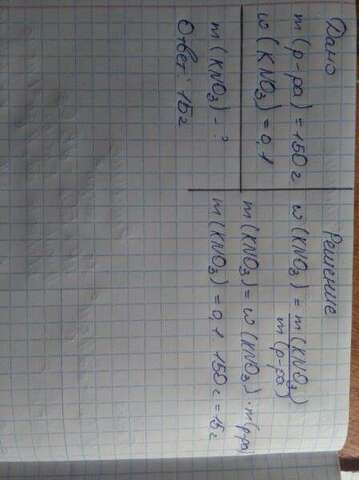 Дано
m (р-ра) = 150 г
w (KNO3) = 0,1
m (KNO3) - ?
Ответ: 15 г
Решение
w (KNO3) = m (KNO3) / m (р-ра)
m (KNO3) = w (KNO3) · m (р-ра)
m (KNO3) = 0,1 · 150 г = 15 г